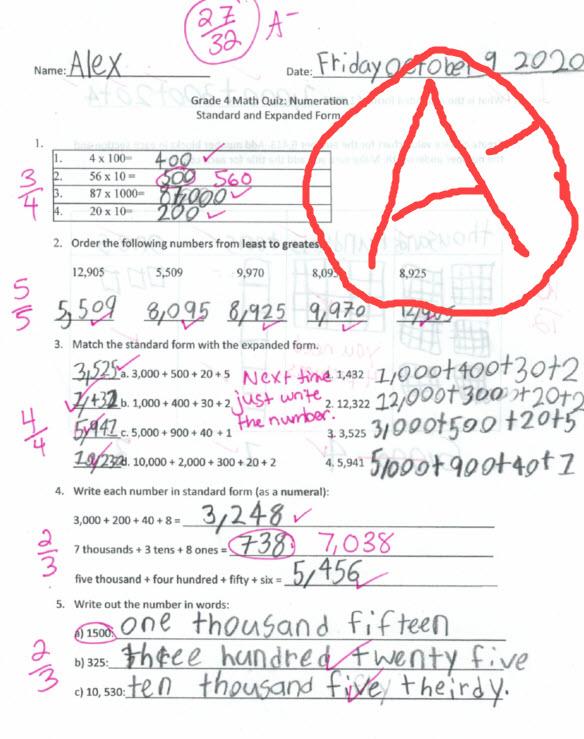 27/32 A-
Name: Alex Date: Friday October 9 2020
Grade 4 Math Quiz: Numeration
Standard and Expanded Form
A-
1.
3/4
1. 4 x 100= 400
2. 56 x 10= 500 560
3. 87 x 1000= 87,000
4. 20 x 10= 200
2. Order the following numbers from least to greatest
12,905 5,509 9,970 8,095 8,925
5/5
5,509 8,095 8,925 9,970 12,905
3. Match the standard form with the expanded form.
4/4
3,525 a. 3,000 + 500 + 20 + 5 Next time 1,432 1,000+400+30+2
1,432 b. 1,000 + 400 + 30 + 2 just write 2. 12,322 12,000+300+20+2
5,941 c. 5,000 + 900 + 40 + 1 the number. 3. 3,525 3,000+500+20+5
d. 10,000 + 2,000 + 300 + 20 + 2 4. 5,941 5,000+900+40+1
4. Write each number in standard form (as a numeral):
2/3
3,000 + 200 + 40 + 8 = 3,248
7 thousands + 3 tens + 8 ones = 738 7,038
five thousand + four hundred + fifty + six = 5,456
5. Write out the number in words:
2/3
a) 1500: one thousand fifteen
b) 325: three hundred twenty five
c) 10, 530: ten thousand five theirdy.